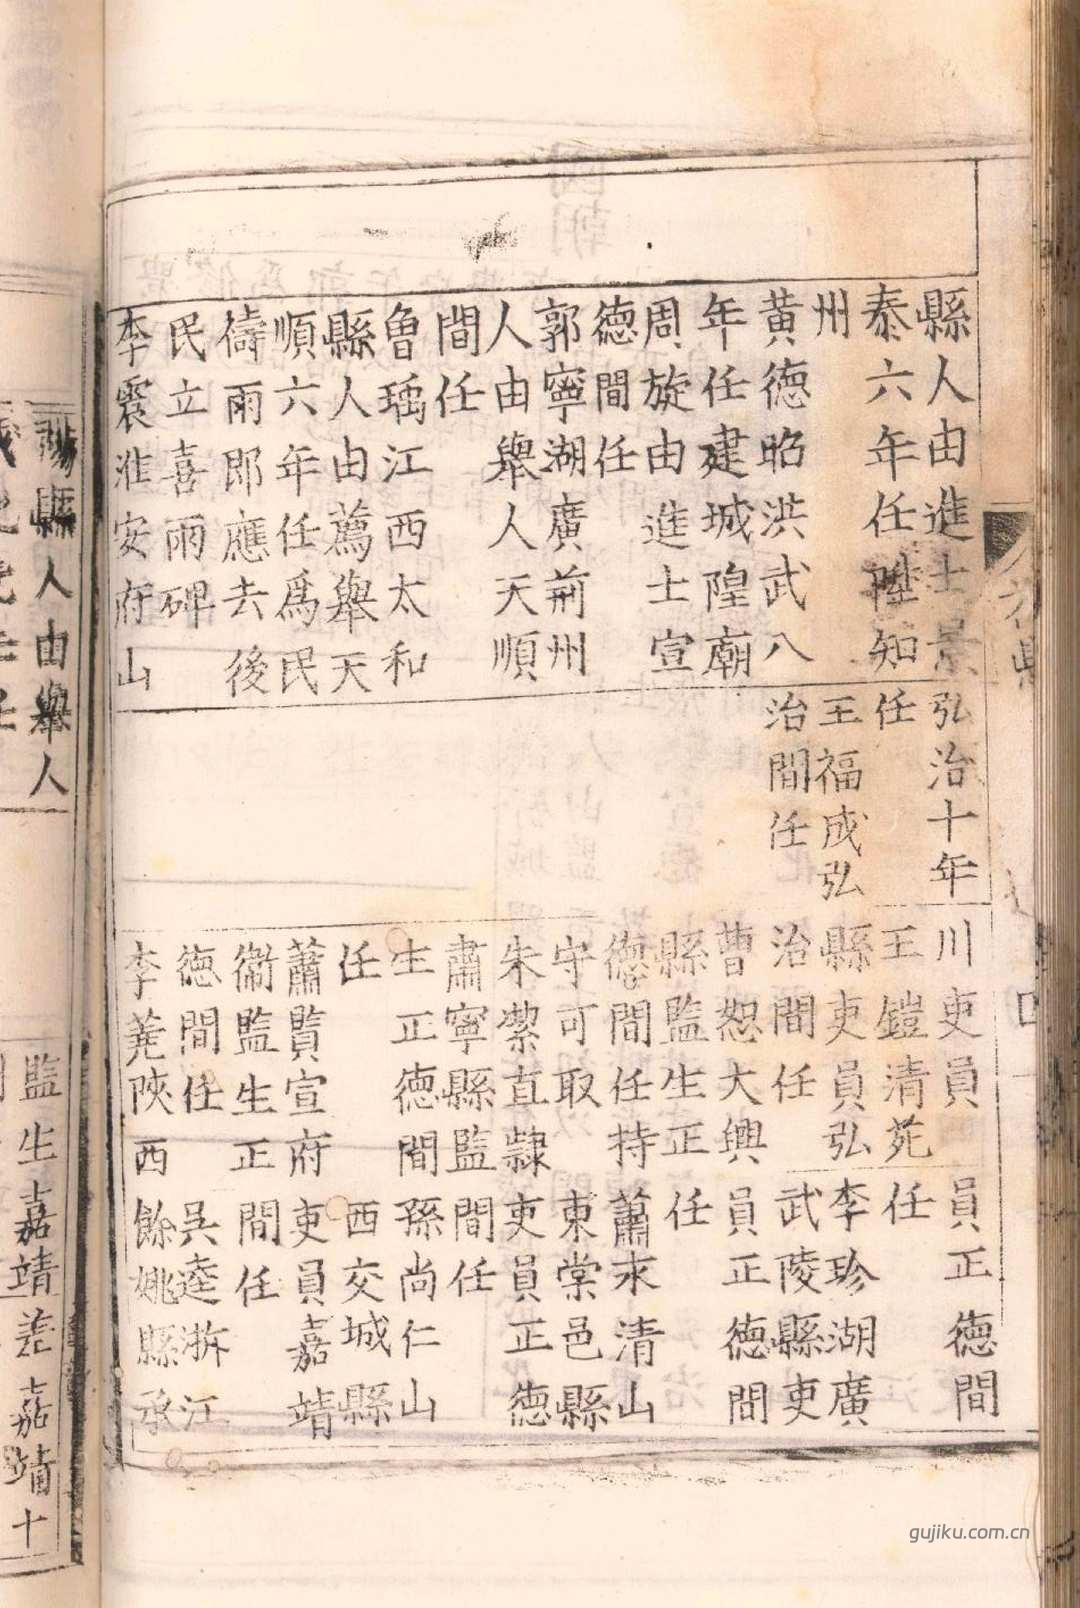 縣人由進士景
泰六年任陞知
州
黃德昭洪武八
年任建城隍廟
周旋由進士宣
德間任
郭寧湖廣荊州
人由舉人天順
間任
魯瑀江西太和
縣人由薦舉天
順六年任爲民
禱雨即應去後
民立喜雨碑
李震淮安府山
弘治十年
任
王福成弘
治間任
川吏員
王鎧清苑
縣吏員弘
治間任
曹恕大興
縣監生正
德間任持
守可取
朱潔直隸
肅寧縣監
生正德間
任
蕭賢宣府
衞監生正
德間任
李蕘陝西
員正德間
任
李珍湖廣
武陵縣吏
員正德間
任
蕭求清山
東棠邑縣
吏員正德
間任
孫尚仁山
西交城縣
吏員嘉靖
間任
吳逵浙江
餘姚縣承
縣人由舉人
監生嘉靖
差嘉靖十
gujiku.com.cn